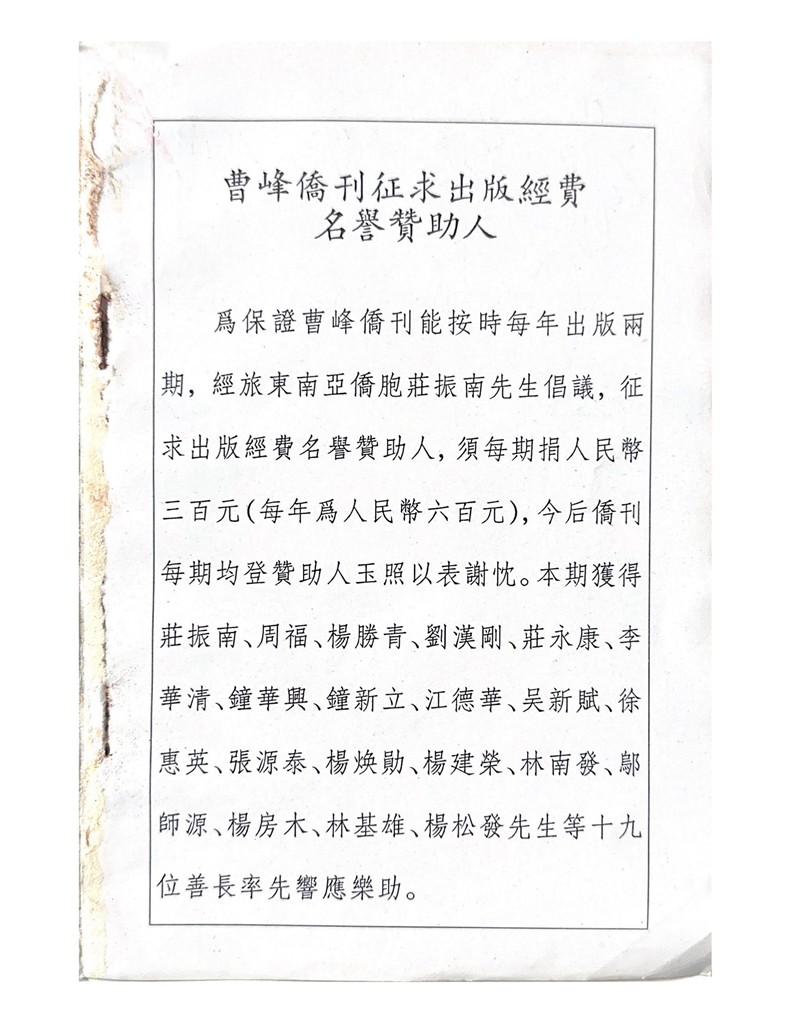 曹峰僑刊征求出版經費
名譽贊助人
爲保證曹峰僑刊能按時每年出版兩
期，經旅東南亞僑胞莊振南先生倡議，征
求出版經費名譽贊助人，須每期捐人民幣
三百元(每年爲人民幣六百元)，今后僑刊
每期均登贊助人玉照以表謝忱。本期獲得
莊振南、周福、楊勝青、劉漢剛、莊永康、李
華清、鐘華興、鐘新立、江德華、吴新賦、徐
惠英、張源泰、楊焕勛、楊建榮、林南發、鄔
師源、楊房木、林基雄、楊松發先生等十九
位善長率先響應樂助。